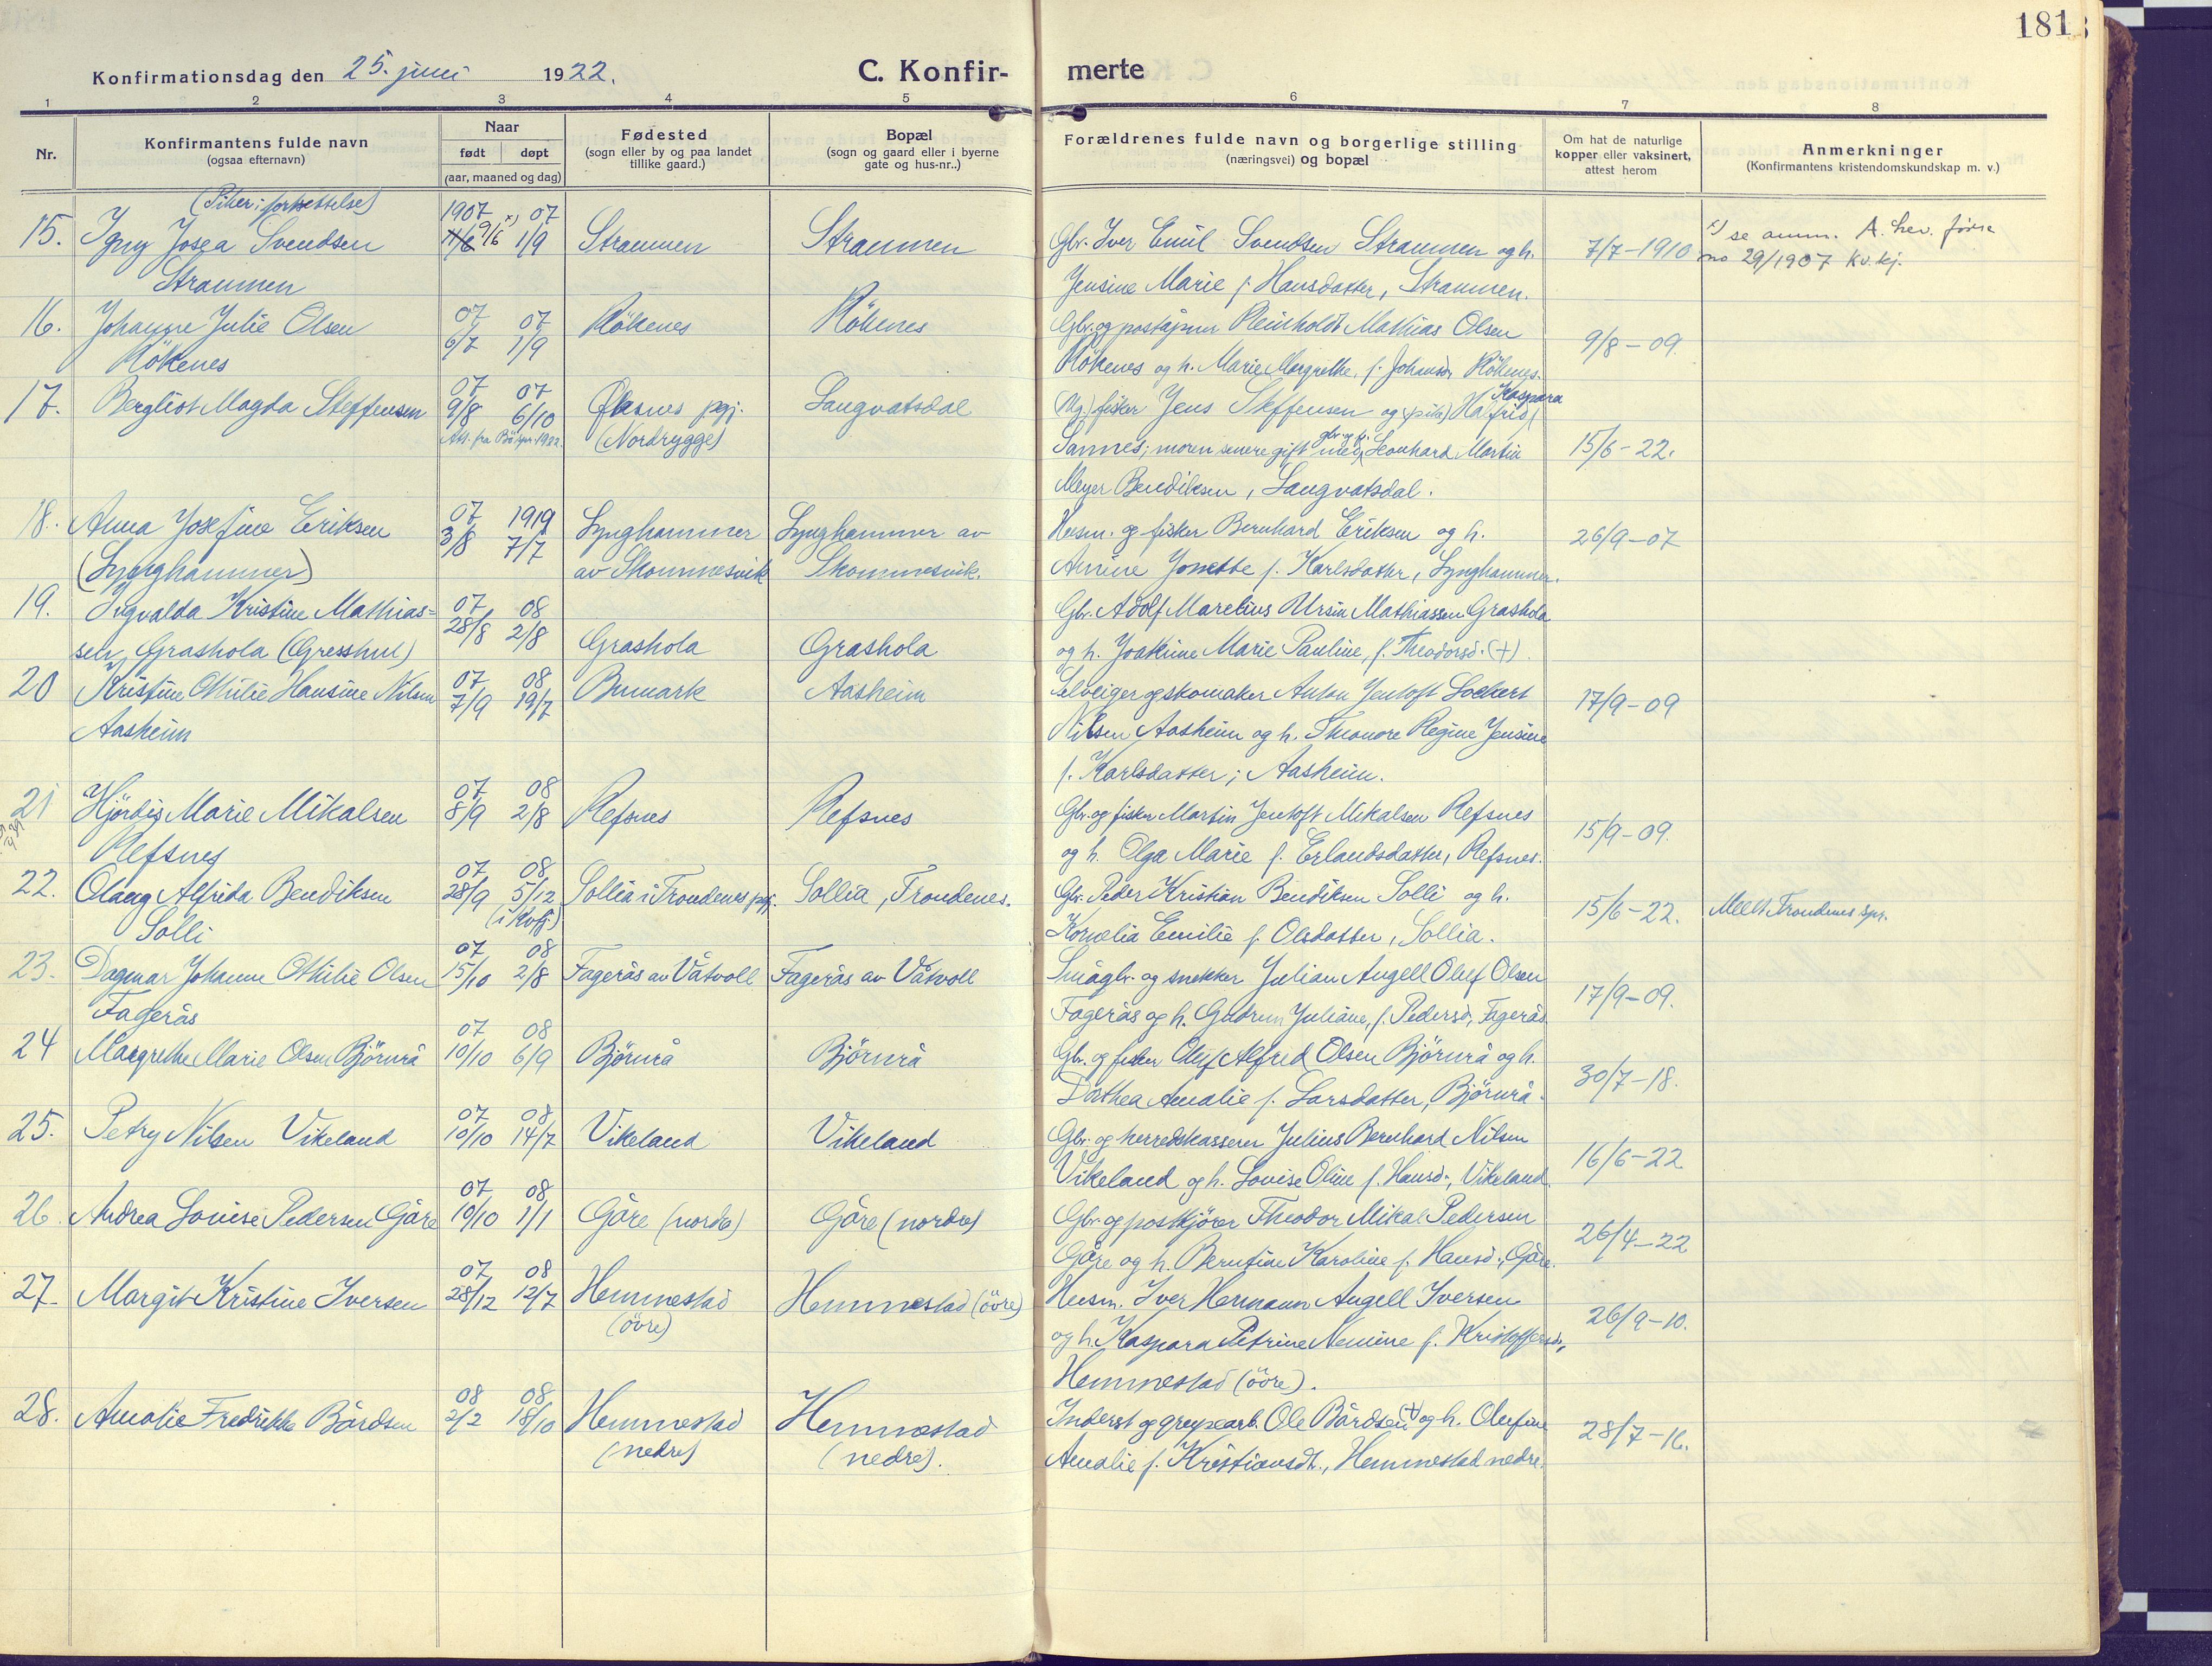 181
Konfirmationsdag den 25. juni 1922.
C. Konfirmerte
1 2 3 4 5 6 7 8
Nr.
Konfirmantens fulde navn
(ogsaa efternavn)
Naar
født døpt
(aar, maaned og dag)
Fødested
(sogn eller by og paa landet
tillike gaard.)
Bopæl
(sogn og gaard eller i byerne
gate og hus-nr..)
Forældrenes fulde navn og borgerlige stilling
(næringsvei) og bopæl
Om hat de naturlige
kopper eller vaksinert,
attest herom
Anmerkninger
(Konfirmantens kristendomskundskap m. v.)
(Piker: fortsettelse)
1907 x) 07
15. Josea Svendsen 11/6 9/6 1/9 Straumen Straumen Gbr. Iver Emil Svendsen Straumen og h. 7/7-1910 x) se anm. A. hev. 
Straumen Jensine Marie f. Hansdatter, Straumen. no 29/1907 Kv.kj.
07 07
16. Johanne Julie Olsen 6/7 1/9 Rökenes Rökenes Gbr. og poståpner Reinholdt Mathias Olsen 9/8-09.
Rökenes Rökenes og h. Marie Margrethe, f. Johansdr. Rökenes.
07 07 Kaspara
17. Bergliot Magda Steffensen 9/8 6/10 Øksnes pgj. Langvatsdal (Ug.) fisker Jens Steffensen og (pike) Halfrid
Att. fra Bö spr. 1922. (Nordrygge) Sannes; moren senere gift med gbr. og fi. Leonhard Martin 15/6-22.
Meyer Bendiksen, Langvatsdal.
07 1919
18. Anna Josefine Eriksen 3/8 7/7 Lynghammer Lynghammer av Husm. og fisker Bernhard Eriksen og h. 26/9-07
(Lynghammer) av Skommesvik Skommesvik. Jonette f. Karlsdatter, Lynghammer.
07 08
19. Sigvalda Kristine Mathias- 28/8 2/8 Grashola Grashola Gbr. Adolf Marelius Ursin Mathiassen Grashola
sen, Grashola (Gresshul) og h. Joakime Marie Pauline, f. Theodorsd. (+).
07 08
20 Kristine Othilie Hansine Nilsen 7/9 19/7 Bumark Aasheim Selveiger og skomaker Anton Jentoft Lockert 17/9-09
Aasheim Nilsen Aasheim og h. Regine Jensine
f. Karlsdatter; Aasheim.
07 08
21 Hjördis Marie Mikalsen 8/9 2/8 Refsnes Refsnes Gbr. og fisker Martin Jentoft Mikalsen Refsnes 15/9-09.
Refsnes og h. Olga Marie f. Erlandsdatter, Refsnes.
07 08
22. Olaug Alfrida Bendiksen 28/9 5/12 Sollia i Trondenes pgj. Sollia, Trondenes. Gbr. Peder Kristian Bendiksen Solli og h. 15/6-22. Meldt Trondenes spr.
Solli (i Kvfj.) Kornelia Emilie f. Olsdatter, Sollia.
07 08
23. Dagmar Johanne Othilie Olsen 15/10 2/8 Fagerås av Våtvoll Fagerås av Våtvoll Smågbr. og snekker Julian Angell Oluf Olsen 17/9-09.
Fagerås Fagerås og h. Gudrun Juliane, f. Pedersd., Fagerås
07 08
24 Margrethe Marie Olsen Björnrå 10/10 6/9 Björnrå Björnrå Gbr. og fisker Oluf Alfred Olsen Björnrå og h. 30/7-18.
Dorthea Amalie f. Larsdatter, Björnrå.
07 08
25. Petry Nilsen Vikeland 10/10 14/7 Vikeland Vikeland Gbr. og herredskasserer Julius Bernhard Nilsen 16/6-22
Vikeland og h. Lovise Oline f. Hansd., Vikeland.
07 08
26. Andrea Lovise Pedersen Gåre 10/10 1/1 Gåre (nordre) Gåre (nordre) Gbr. og postkjörer Theodor Mikal Pedersen 26/4-22
Gåre og h. Berntine Karoline f. Hansd., Gåre.
07 08
27. Margit Kristine Iversen 28/12 12/7 Hemmestad Hemmestad (övre) Husm. Iver Hermann Angell Iversen 26/9-10.
(övre) og h. Kaspara Petrine Nemine f. Kristoffersdr.,
Hemmestad (övre).
08 08
28. Amalie Fredrikke Bårdsen 2/2 18/10 Hemmestad Hemmestad Inderst og grupearb. Ole Bårdsen (+) og h. Olufine 28/7-16.
(nedre) (nedre). Amalie f. Kristiansdt., Hemmestad nedre.